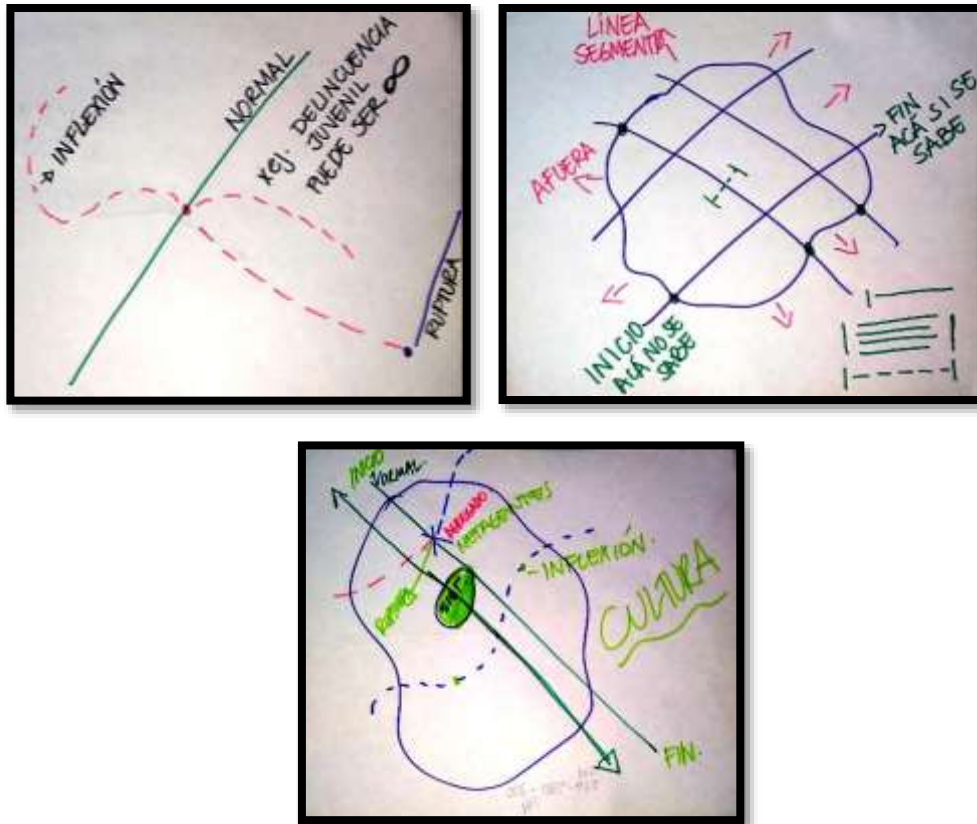 INFLEXIÓN
NORMAL
xej. DELINCUENCIA
JUVENIL
PUEDE SER ∞
RUPTURA
LÍNEA
SEGMENTA
AFUERA
FIN
ACÁ SI SE
SABE
INICIO
ACÁ NO SE
SABE
INICIO
NORMAL
INFLEXIÓN.
CULTURA
FIN.